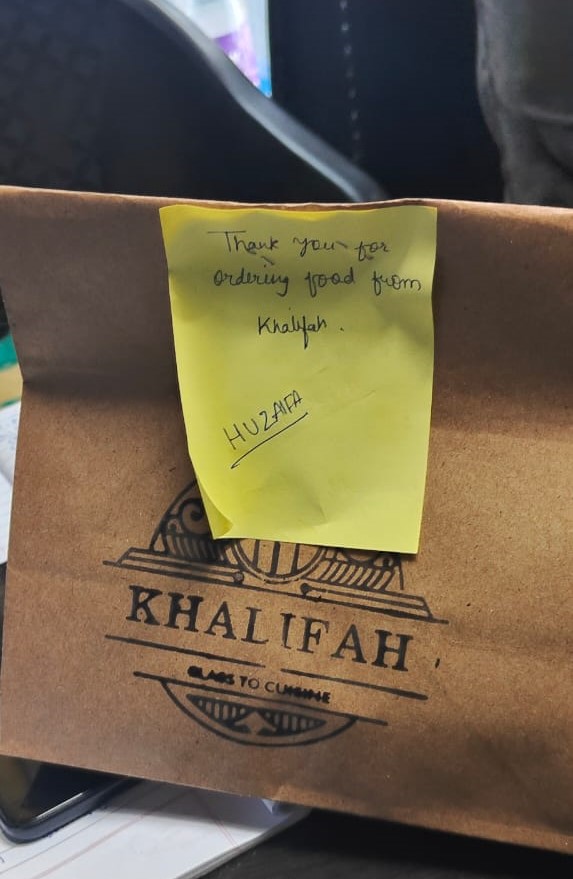 Thank you for
ordering food from
Khalifah.
HUZAIFA
KHALIFAH
CLASS TO CUISINE